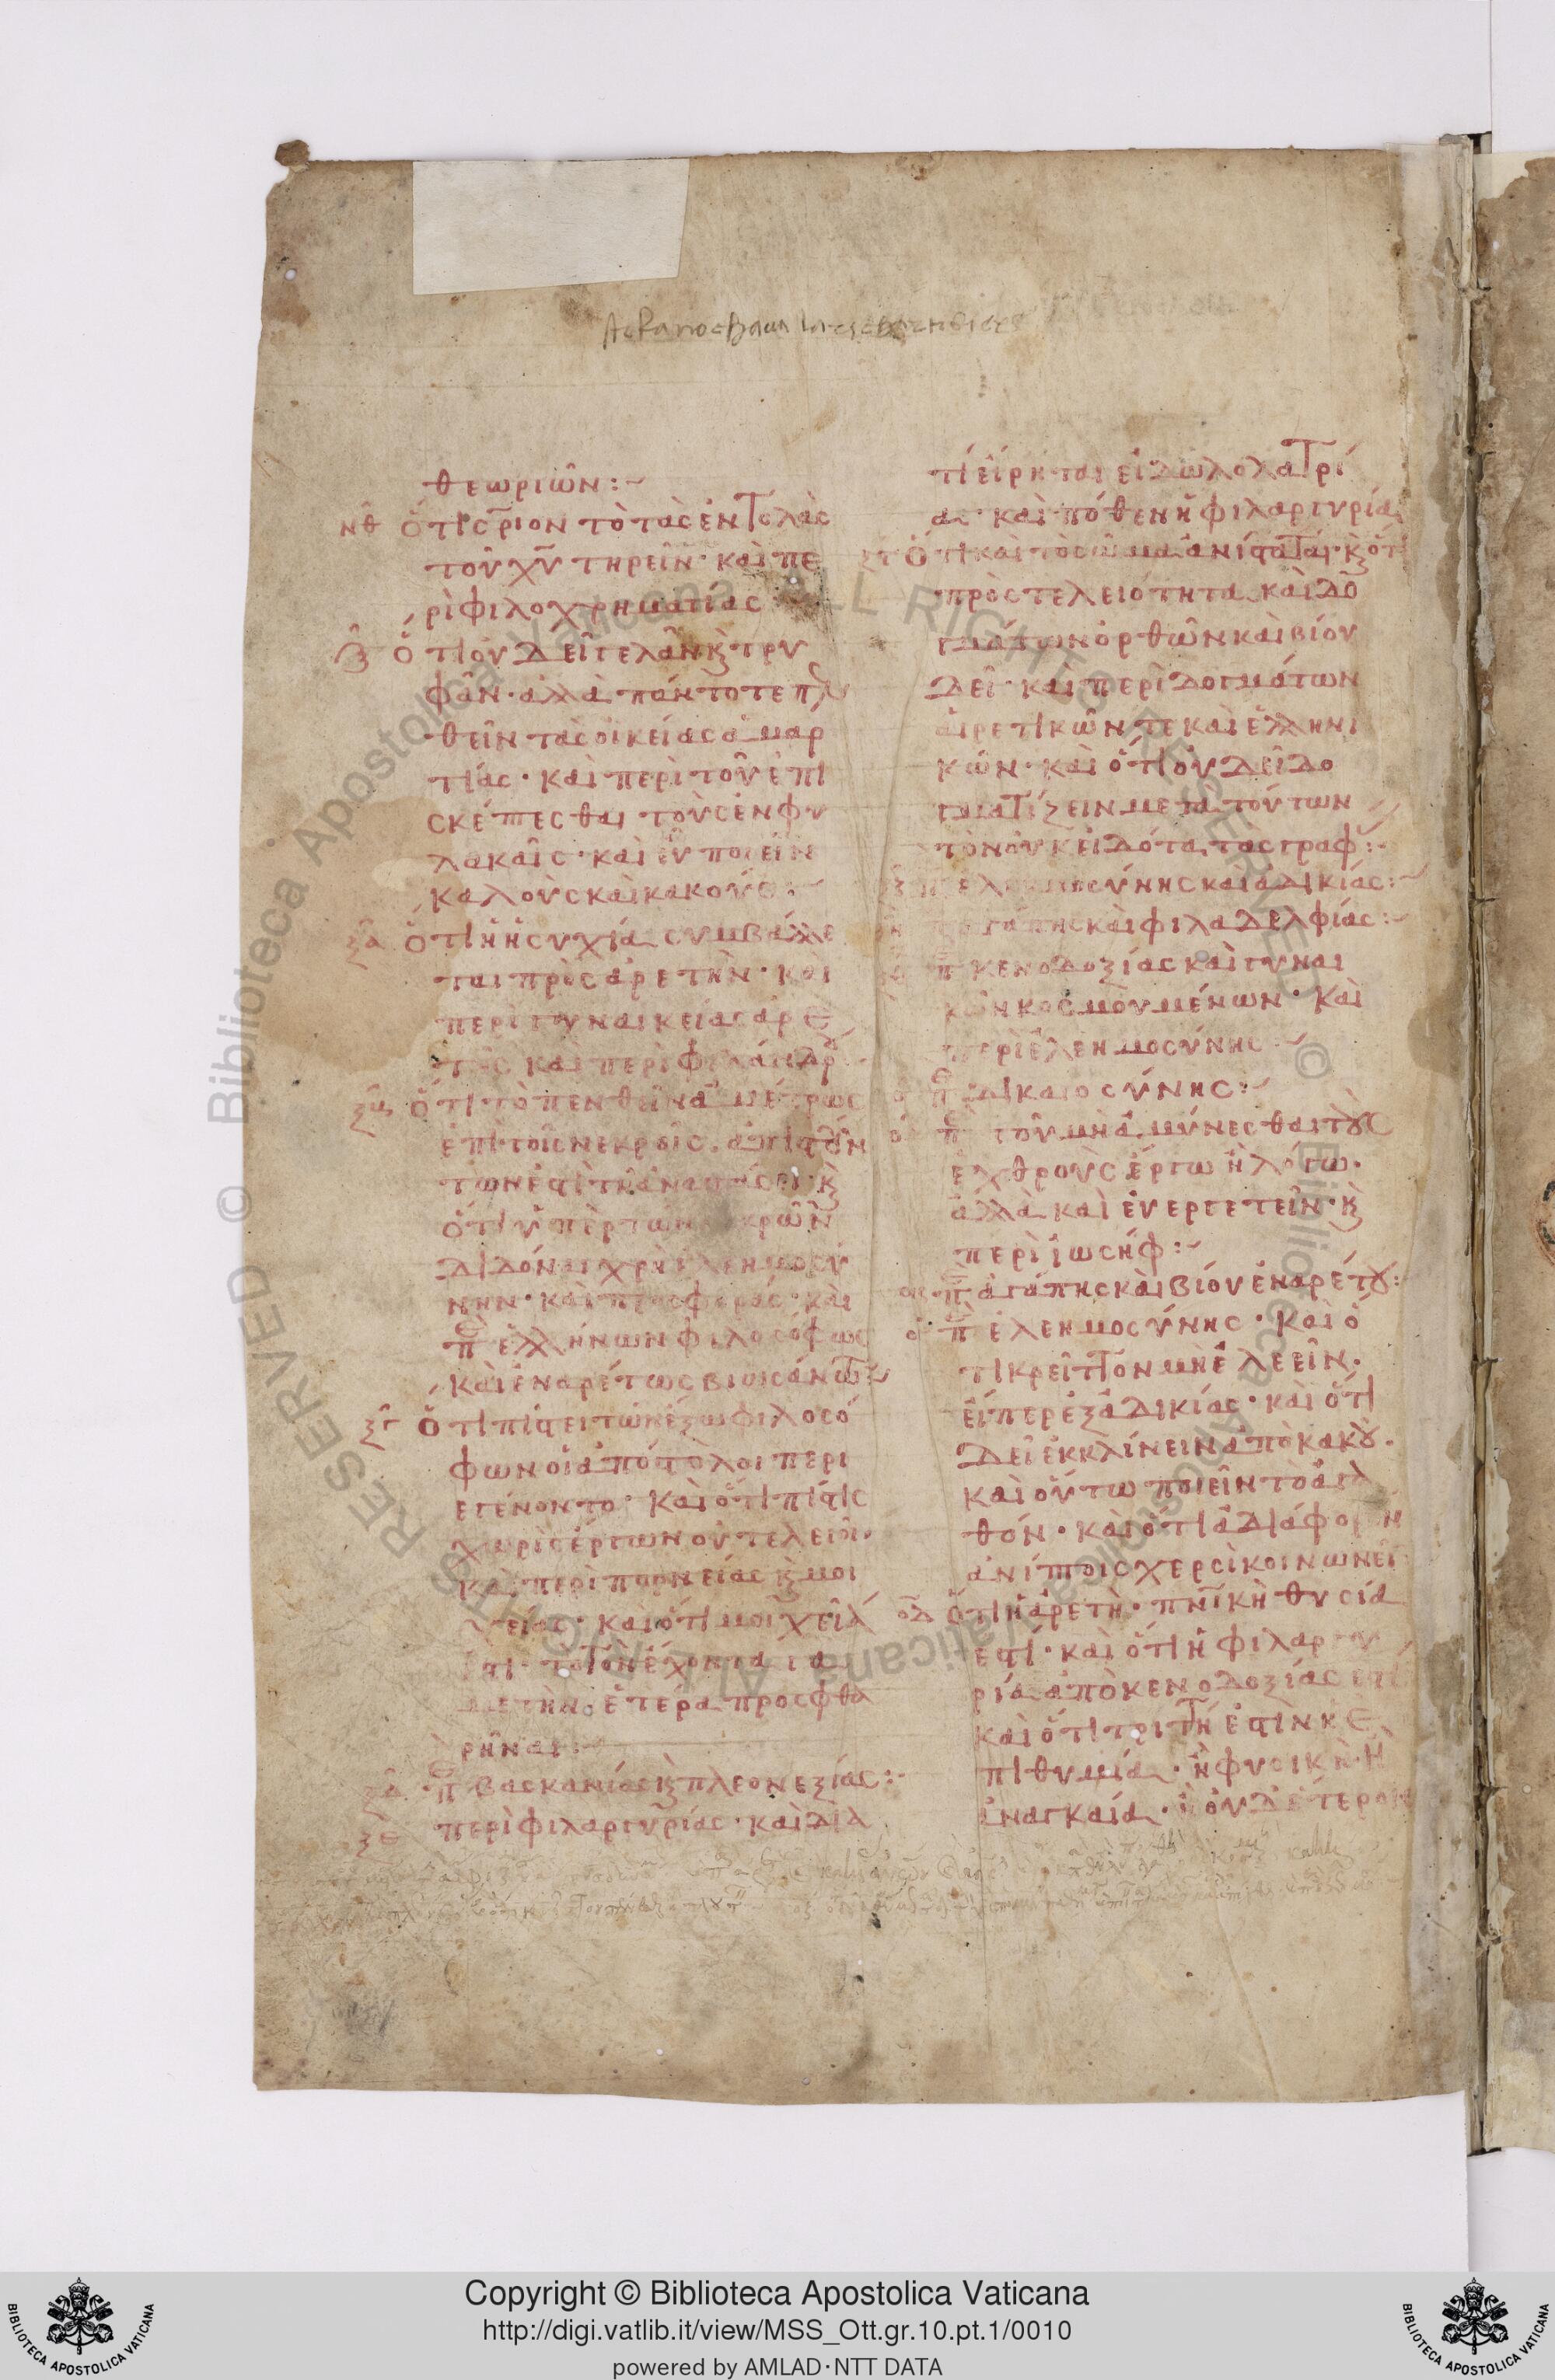 θεωριῶν:~
νθ Ὅτι σ̅ριον τὸ τὰς ἐντολὰς
τοῦ χ̅υ̅ τηρεῖν· καὶ πε
ρὶ φιλοχρηματίας
ξ Ὅτι οὐ δεῖ γελᾶν κ̀ τρυ
φᾶν· ἀλλὰ πάντοτε πε̅
θεῖν τὰς οἰκείας ἁμαρ
τίας· καὶ περὶ τοῦ ἐπι
σκέπτεσθαι τοὺς ἐν φυ
λακαῖς· καὶ εὖ ποιεῖν
καλοὺς καὶ κακούς:~
ξα Ὅτι ἡ ἡσυχία συμβάλλε
ται πρὸς ἀρετὴν· καὶ
περὶ γυναικείας ἀρε
τῆς καὶ περὶ
ξβ Ὅτι τὸ πενθεῖν ἀμέτρως
ἐπὶ τοῖς νεκροῖς. ἀπιστούν
των ἐστὶ τῆ ἀναστάσει· κ̀
ὅτι ὑπὲρ τῶν νεκρῶν
διδόναι χρὴ ἐλεημοσύ
νην· καὶ προσφοράς· καὶ
π̅ ἑλλήνων φιλοσόφως
καὶ ἐναρέτως βιωσάντω̅
ξγ Ὅτι πίστει τῶν ἔξω φιλοσό
φων οἱ ἀπόστολοι περι
εγένοντο· καὶ ὅτι πίστις
χωρὶς ἔργων οὐ τελειοῖ·
καὶ περὶ πορνείας κ̀ μοι
χείας· καὶ ὅτι μοιχεία
ἐστὶ· τὸ τὸν ἔχοντα ἰδί
αν μετὴν· ἑτέρα προσφθα
ρῆναι:~
ξδ π̅ βασκανίας κ̀ πλεονεξίας:~
ξε περὶ φιλαργυρίας· καὶ διὰ
τί εἴρηται εἰδωλολατρί
ας· καὶ πόθεν ἡ φιλαργυρία
ξϛ Ὅτι καὶ τὸ σῶμα ἀνίσταται· κ̀ ὅτι
πρὸς τελειότητα καὶ δο
γμάτων ὀρθῶν καὶ βίου
δεῖ· καὶ περὶ δογμάτων
αἱρετικῶν τε καὶ ἑλληνι
κῶν· καὶ ὅτι οὐ δεῖ δο
γματίζειν μετὰ τούτων
τὸν οὐκ εἰδότα τὰς γραφ:~
ξζ π̅ ἐλεημοσύνης καὶ ἀδικίας:~
ξη π̅ ἀγάπης καὶ φιλαδελφίας:~
ξθ π̅ κενοδοξίας καὶ γυναι
κῶν κοσμουμένων· καὶ
περὶ ἐλεημοσύνης:~
ο π̅ δικαιοσύνης:~
οα π̅ τοῦ μὴ ἀμύνεσθαι τοὺς
ἐχθροὺς ἔργω ἢ λόγω·
ἀλλὰ καὶ εὐεργετεῖν· κ̀
περὶ ἰωσήφ:~
οβ π̅ ἀγάπης καὶ βίου ἐναρέτου:
ογ π̅ ἐλεημοσύνης· καὶ ὅ
τι κρεῖττον μὴ ἐλεεῖν.
εἴπερ ἐξ ἀδικίας· καὶ ὅτι
δεῖ ἐκκλίνειν ἀπὸ κακοῦ·
καὶ οὕτω ποιεῖν τὸ ἀγα
θόν· καὶ ὅτι ἀδιάφορον
ἀνίπτοις χερσὶ κοινωνεῖν
οδ Ὅτι ἡ ἀρετὴ· πν̅ικὴ θυσία
ἐστὶ· καὶ ὅτι ἡ φιλαργυ
ρία ἀπὸ κενοδοξίας ἐστὶ
καὶ ὅτι τριττή ἐστιν ἡ ἐ
πιθυμία· ἢ φυσικὴ· ἢ
ἀναγκαία· ἢ οὐδέτερον
Copyright © Biblioteca Apostolica Vaticana
http://digi.vatlib.it/view/MSS_Ott.gr.10.pt.1/0010
powered by AMLAD·NTT DATA
BIBLIOTECA APOSTOLICA VATICANA
BIBLIOTECA APOSTOLICA VATICANA